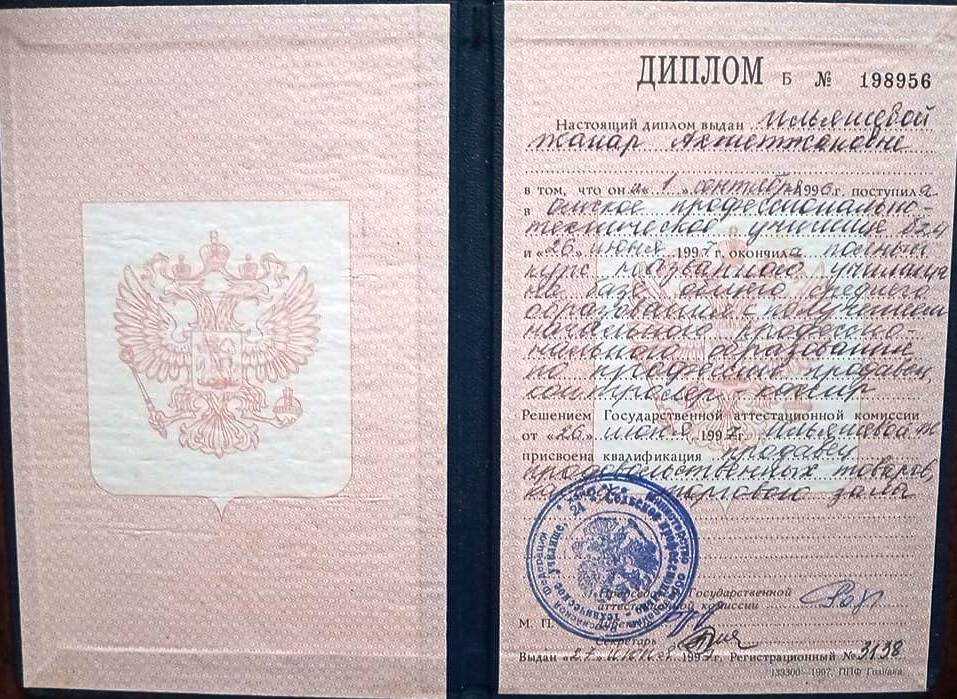 ДИПЛОМ Б № 198956
Настоящий диплом выдан Ильяшевой
Жанар Ахметжановне
в том, что она « 1 » сентября 1996 г. поступила
в Омское профессионально-
техническое училище №24
и «26» июня 1997 г. окончила полный
курс названного училища
на базе общего среднего
образования с получением
начального профессио-
нального образования
по профессии продавец,
контролер кассир
Решением Государственной аттестационной комиссии
от «26» июня 1997 г. Ильяшевой
присвоена квалификация продавец
продовольственных товаров,
торгового зала
Председатель Государственной
аттестационной комиссии
М. П. Директор
Секретарь
Выдан «27» июня 1997 г. Регистрационный № 3138
133300—1997, ППФ Гознака